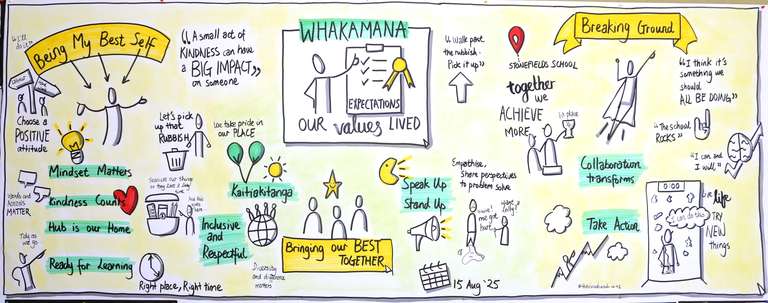 "I'll do it"
Being My Best Self
Choose a
POSITIVE
attitude
Mindset Matters
Kindness Counts
Words and
Actions
MATTER
Hub is our Home
Tidy as
we go
Ready for Learning
Right place, Right time
"A small act of
KINDNESS can have
a BIG IMPACT
on someone"
Let's pick
up that
RUBBISH
We take pride in
our PLACE
Kaitiakitanga
Inclusive
and
Respectful
Diversity and difference
matters
WHAKAMANA
EXPECTATIONS
OUR values LIVED
Bringing our BEST
TOGETHER
Speak Up
Stand Up
15 Aug '25
"Walk past
the rubbish -
Pick it up"
STONEFIELDS SCHOOL
together
we
ACHIEVE
MORE
1st place
Empathise,
Share perspectives
to problem solve
Breaking Ground
"I think it's
something we
should
ALL BE DOING"
"The school
ROCKS"
"I can and
I will"
Collaboration
transforms
Take Action
I can do this
Live life
TRY
NEW
things